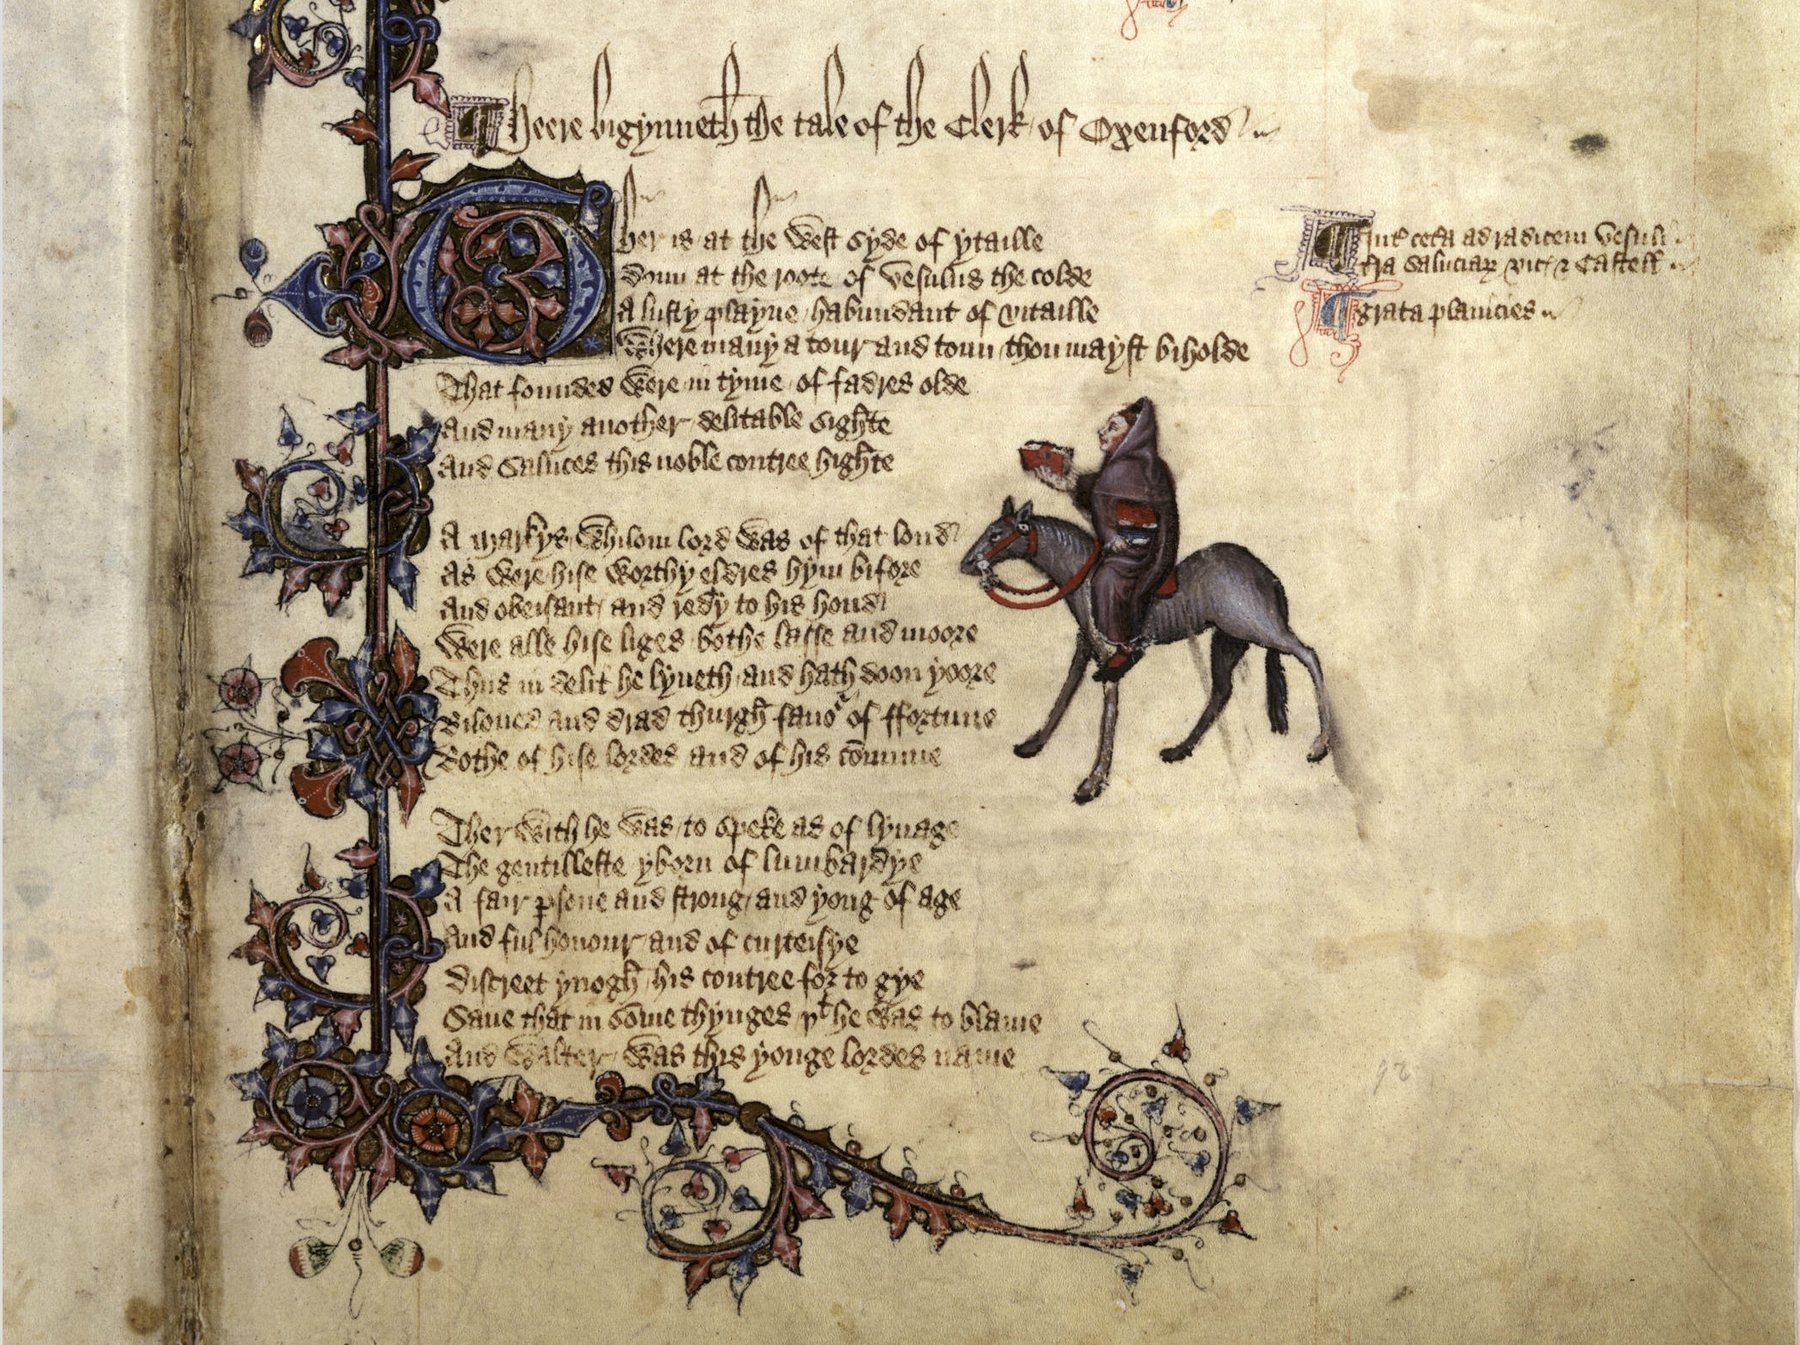 Heere bigynneth the tale of the Clerk of Oxenford
Ther is at the West syde of ytaille
Doun at the roote of Vesulus the colde
A lusty playne habundant of vitaille
Where many a tour and toun thou mayst biholde
That founded were in tyme of fadres olde
And many another delitable sighte
And Saluces this noble contree highte
A markys whilom lord was of that lond
As were hise worthy eldres hym bifore
And obeisant and redy to his hond
Were alle hise liges bothe lasse and moore
Thus in delit he lyueth and hath doon yoore
Biloued and drad thurgh fauor of ffortune
Bothe of hise lordes and of his comune
Ther with he was to speke as of lynage
The gentilleste yborn of lumbardye
A fair psone and strong and yong of age
And ful honour and of curteisye
Discreet ynogh his contree for to gye
Saue that in some thynges þt he was to blame
And Walter was this yonge lordes name
ad radicem Vesuli
terra Saluciarum vic et Castell
grata planicies